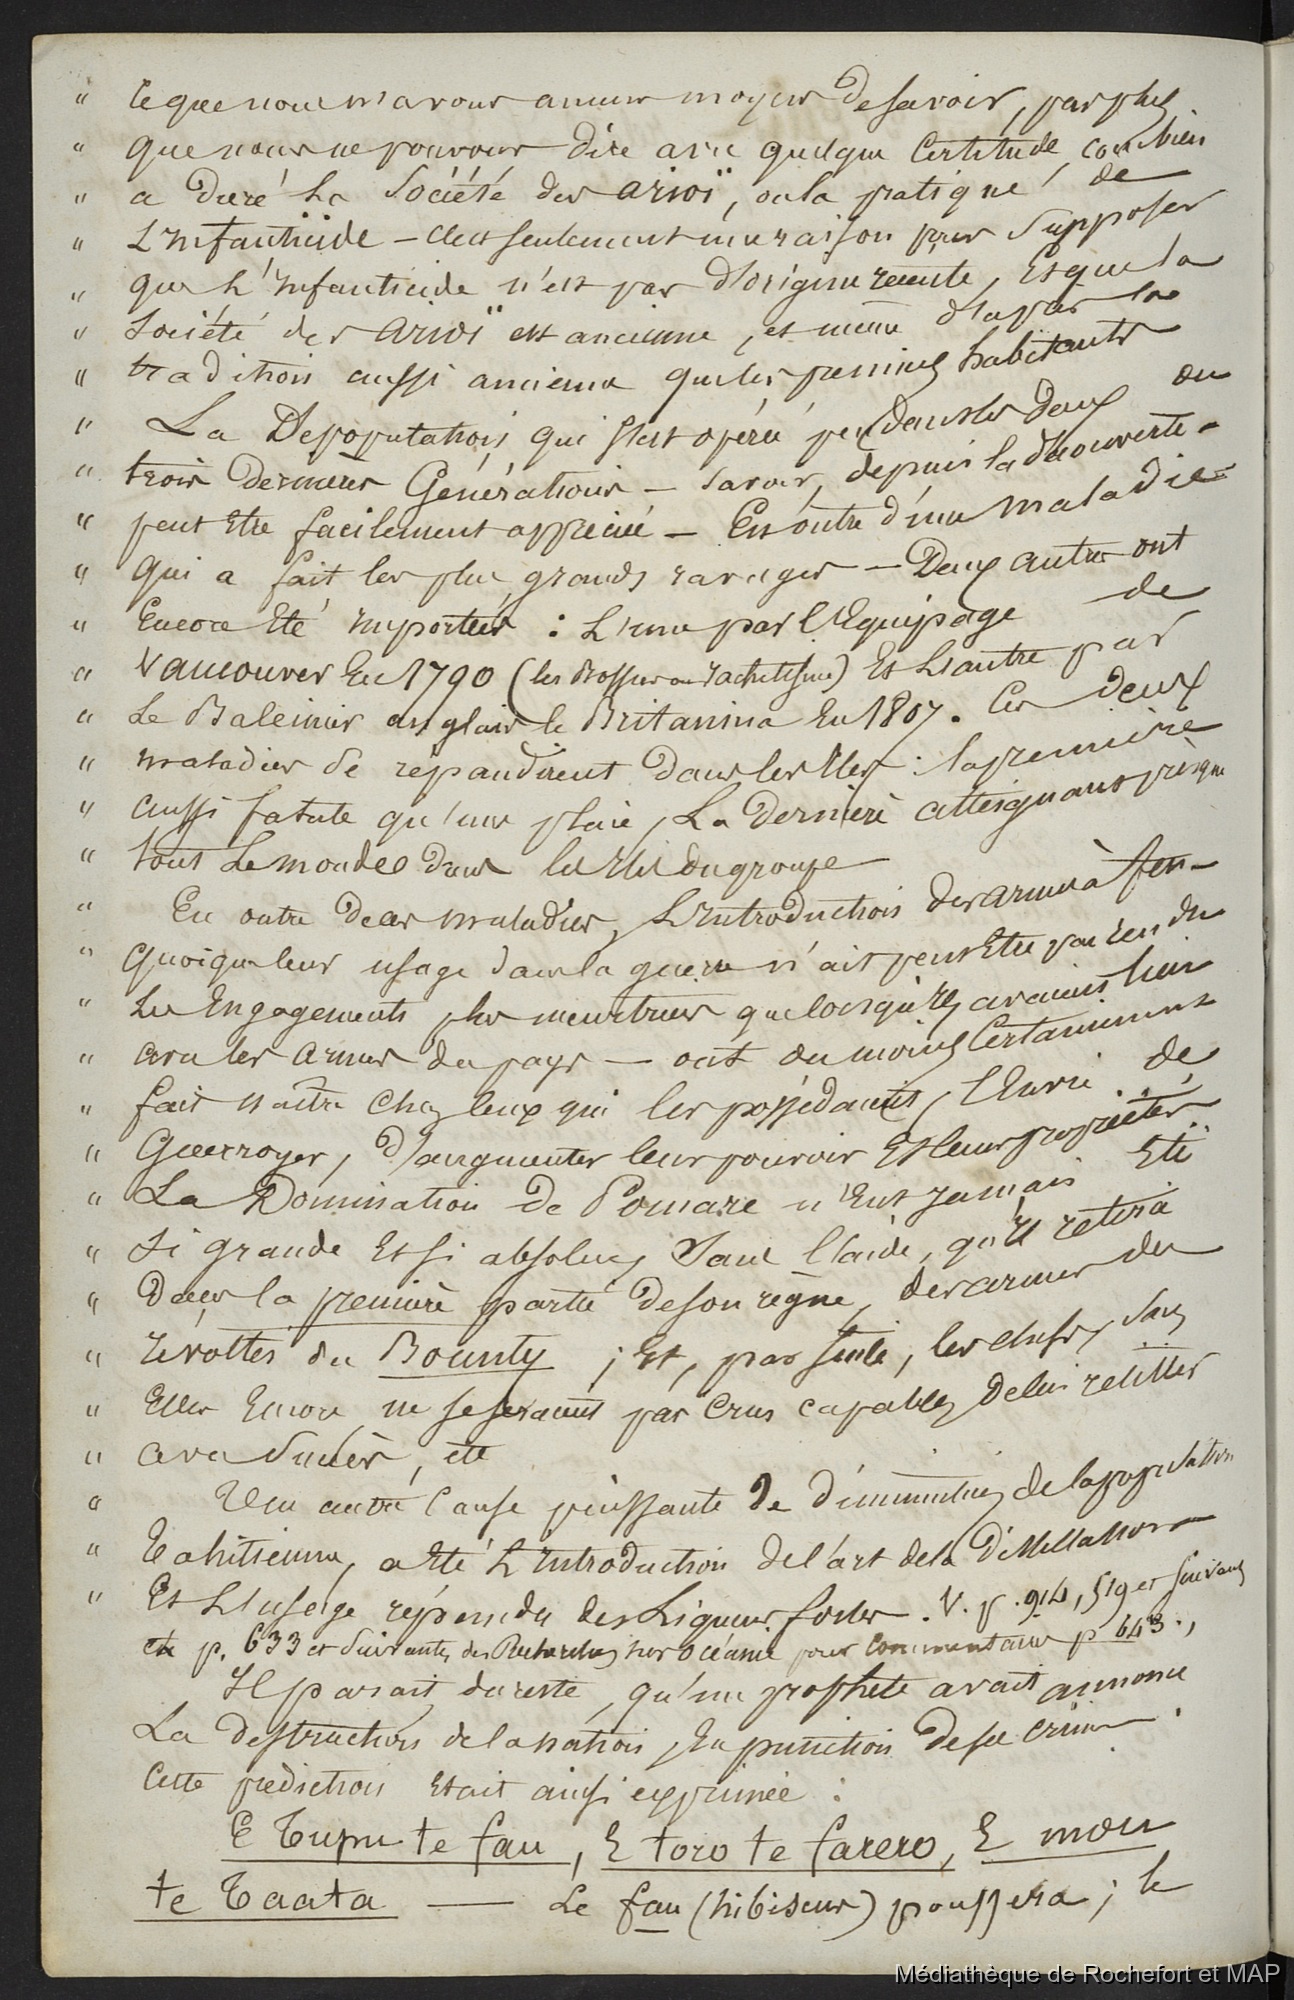 " Ce que nous n'avons aucun moyen de savoir, pas plus
" que nous ne pouvons dire avec quelque Certitude, combien
" a duré La Société des arioï, ou la pratique de
" L'Infanticide – C'est seulement une raison pour Supposer
" que L'Infanticide n'est pas d'origine récente, Et que la
" Société des Arioï est ancienne, et même d'après la
" tradition aussi ancienne que les premiers habitants
" La Dépopulation qui s'est opérée pendant les deux ou
" trois dernières Générations – savoir, depuis la découverte –
" peut Etre facilement appréciée – En outre d'une maladie
" qui a fait les plus grands ravages – Deux autres ont
" Encore Eté importées : L'une par l'Equipage de
" Vancouver En 1790 (les Bosses ou rachitisme) Et L'autre par
" Le Baleinier anglais le Britannia En 1807. Ces deux
" maladies se répandirent dans les Iles : la première
" aussi fatale qu'une plaie, La dernière atteignant presque
" tout Le monde dans les Iles du groupe
" En outre de ces maladies, L'Introduction des armes à feu –
" Quoique leur usage dans la guerre n'ait peut Etre pas rendu
" Les Engagements plus meurtriers que lorsqu'ils avaient lieu
" avec les armes du pays – ont du moins Certainement
" fait naître Chez Ceux qui les possédaient, l'Envie de
" Guerroyer, d'augmenter leur pouvoir Et leurs propriétés.
" La Domination de Pomare n'Eut jamais Eté
" Si grande Et si absolue, Sans l'aide, qu'Il retira
" dans la première partie de son règne, des armes des
" révoltés du Bounty ; Et, par suite, les chefs, sans
" Elles Encore, ne se seraient pas Crus capables de lui résister
" avec Succès, etc
" Une autre Cause puissante de diminution de la population
" Tahitienne, a Eté L'Introduction de l'art de la Distillation
" Et L'usage répandu des Liqueurs fortes. V. p. 914, 519 et suivantes
et p. 633 et Suivantes, des Recherches sur Océanie pour Commentaires p 643.,
Il parait du reste, qu'un prophète avait annoncé
La destruction de la nation, En punition de ses crimes.
Cette prédiction Etait ainsi exprimée :
E Tupu te fau, E toro te farero, E mou
te Taata — Le fau (hibiscus) poussera ; le
Médiathèque de Rochefort et MAP